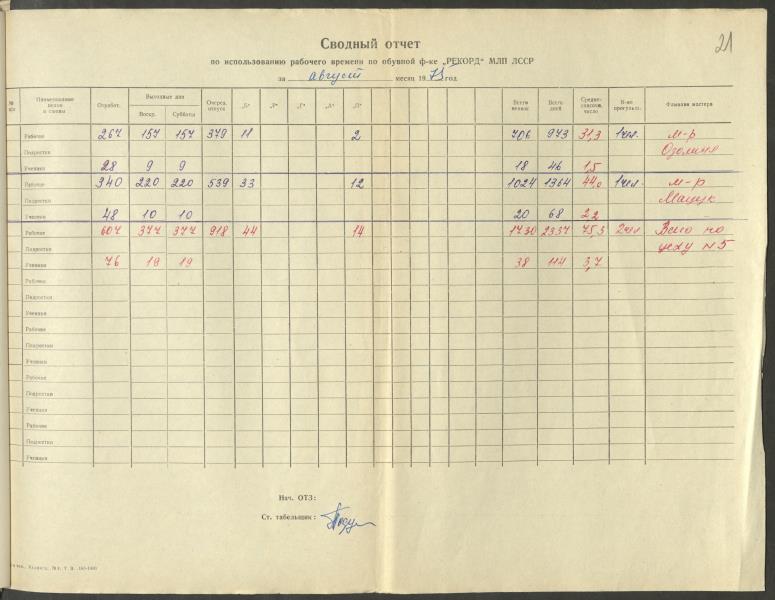 21
Сводный отчет
по использованию рабочего времени по обувной ф-ке „РЕКОРД“ МЛП ЛССР
за август месяц 1975 год
№ Наименование цехов и смены Отработ. Выходные дни Воскр. Субботы Очеред. отпуск „Б“ „Р“ Всего неявок Всего дней Средне-списочн. число К-во прогульщ. Фамилия мастера
Рабочие 267 157 157 379 11 2 706 973 31,3 1чел. м-р
Подростки Озолиня
Ученики 28 9 9 18 46 1,5
Рабочие 340 220 220 539 33 12 1024 1364 44,0 1чел. м-р
Подростки Мацук
Ученики 48 10 10 20 68 2,2
Рабочие 607 377 377 918 44 14 1730 2337 75,3 2чел Всего по
Подростки цеху №5
Ученики 76 19 19 38 114 3,7
Рабочие
Подростки
Ученики
Рабочие
Подростки
Ученики
Рабочие
Подростки
Ученики
Рабочие
Подростки
Ученики
Нач. ОТЗ:
Ст. табельщик: